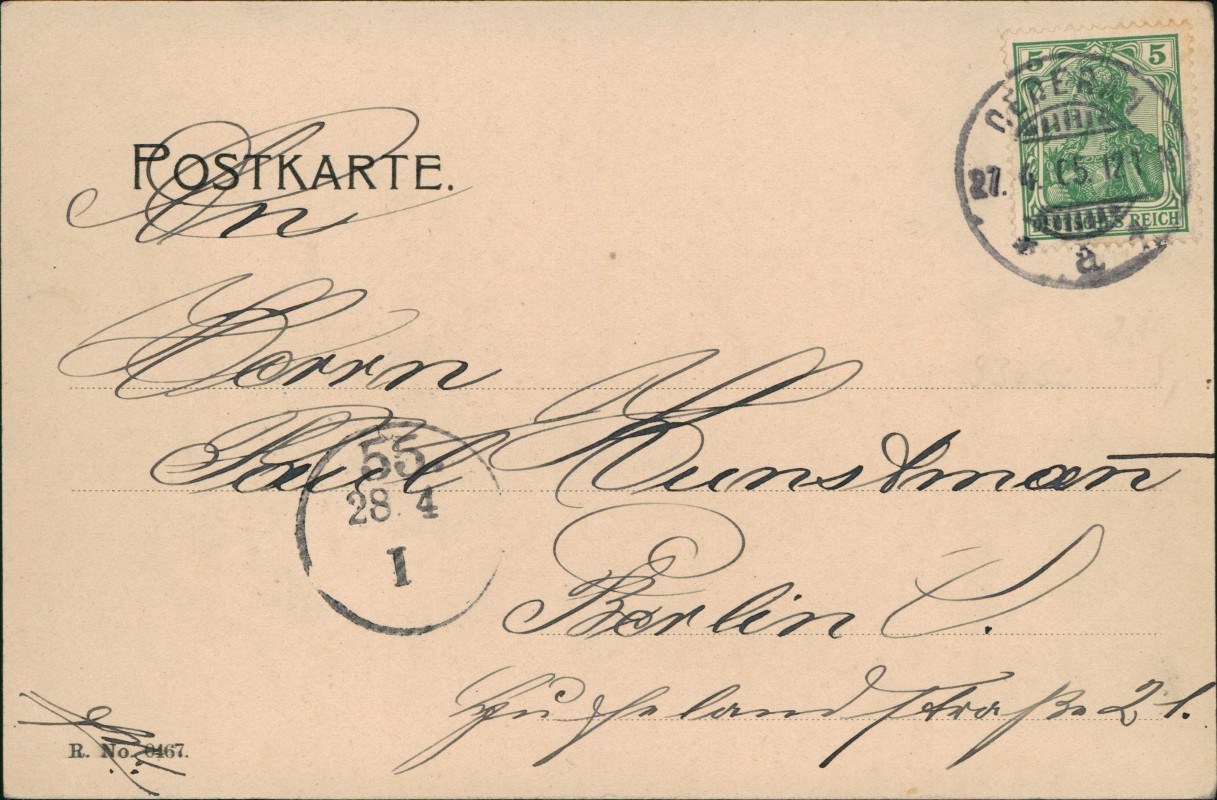 POSTKARTE.
An
5 5
DEUTSCHES REICH
OEDERAN
27. 4. 05. 12-1 N
* a *
Herrn
Paul Kunstmann
55.
28. 4
I
Berlin C.
Hufelandstraße 21.
R. No. 0467.